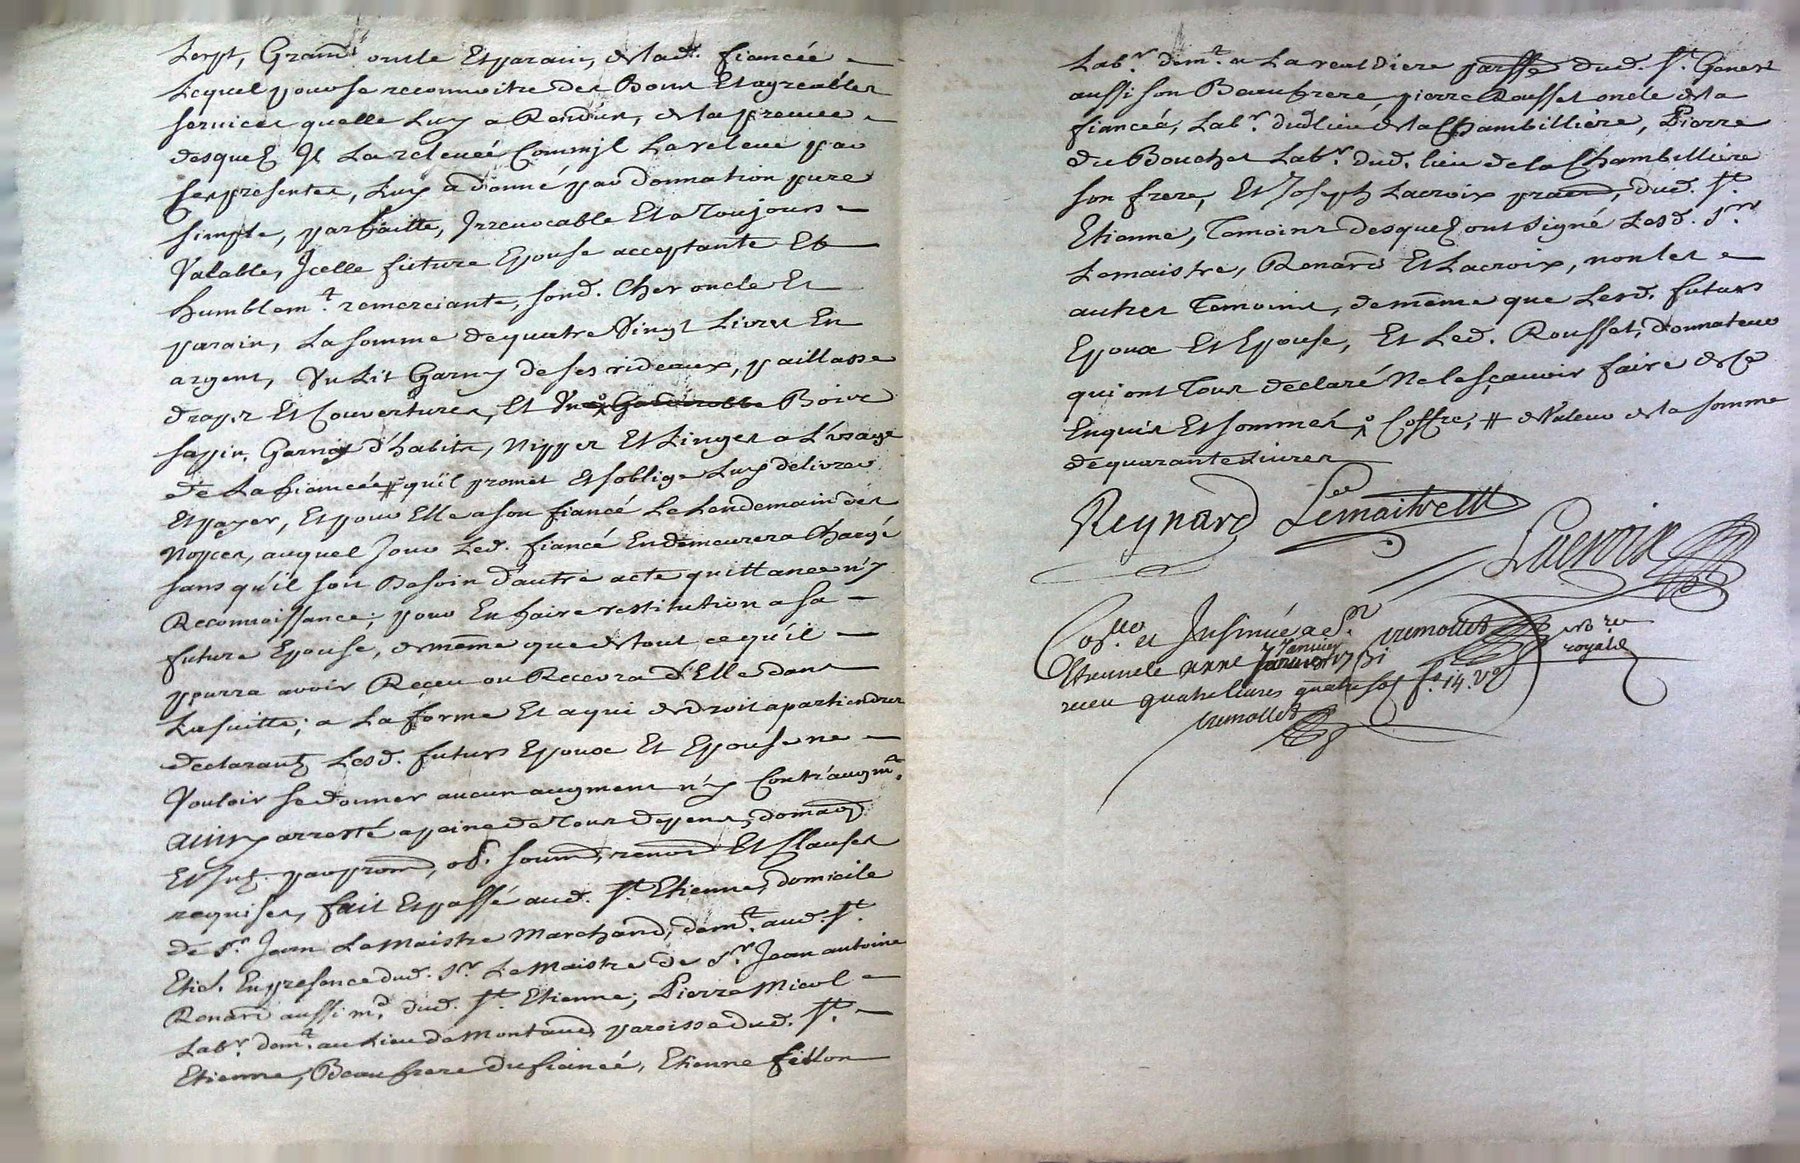 Lerpt, Grand oncle Et parain, de lad. fiancée
Lequel pour se reconnoitre des Bons Et agreables
services quelle Luy a Rendus, de la preuve
desquez Il La relevée Comm'jl La releve par
ses presentes, Luy a donné par donnation pure
simple, parfaitte, Irrevocable Et a Toujours
Valable, Icelle future Epouse acceptante Et
humblemt. remerciante, sond. Cher oncle Et
parain, La somme de quatre Vingt Livres En
argent, Un Lit Garny de ses rideaux, paillasse
draps Et Couvertures, Et Un Garderobbe Bois
sapin, Garny d'habits, Nippes Et Linges a L'usage
de La fiancée # qu'il promet Et s'oblige Luy delivrer
Et payer, Et pour Elle a son fiancé Le Lendemain des
Nopces, auquel Jour Led. fiancé En demeurera Chargé
sans qu'il soit Besoin d'autre acte quittance n'y
Reconnoissance; pour En faire restitution a sa
future Epouse, de même que de tout ce qu'il
pourra avoir Reçeu ou Recevra d'Elle dans
La suitte; a La forme Et a qui de droit apartiendra
declarantz Lesd. futurs Epoux Et Epouse ne
Vouloir se donner aucun augment n'y Contr'augmt.
ainsy arresté a peine de Tous depens, domag
Et Int. par prom, ob. soum, renon Et Clauses
requises, fait Et passé aud. St. Etienne, domicile
de Sr. Jean Le Maistre Marchand, demt. aud. St.
Etie. En presence dud. Sr. Le Maistre de Sr. Jean antoine
Renard aussi md. dud. St. Etienne; Pierre Micol
Labr. demt. au Lieu de Montaud, paroisse dud. St.
Etienne, Beaufrere du fiancé, Etienne fillon
Labr. demt. a La reuldiere parsse dud. St. Genest
aussi son Beaufrere, pierre Rousset oncle de la
fiancée, Labr. dud. lieu de la Chambilliere, Pierre
du Bouchet Labr. dud. lieu de la Chambilliere
son frere, Et Joseph Lacroix praen, dud. St.
Etienne, Temoins desquez ont signé Lesd. Srs
Lemaistre, Renard Et Lacroix, non les
autres Temoins, de même que Lesd. futurs
Epoux Et Epouse, Et Led. Rousset, donnateur
qui ont Tous declaré Ne le sçavoir faire de ce
Enquis Et sommés, Coffre, # de Valeur de la somme
de quarante Livres
Reynard Lemaitre
Lacroix
Coll. et Insinué a St. trimollet
Etienne le onze Janvier Janvier 1751 royale
receu quatre livres quatre sols fo. 14. vo
trimollet